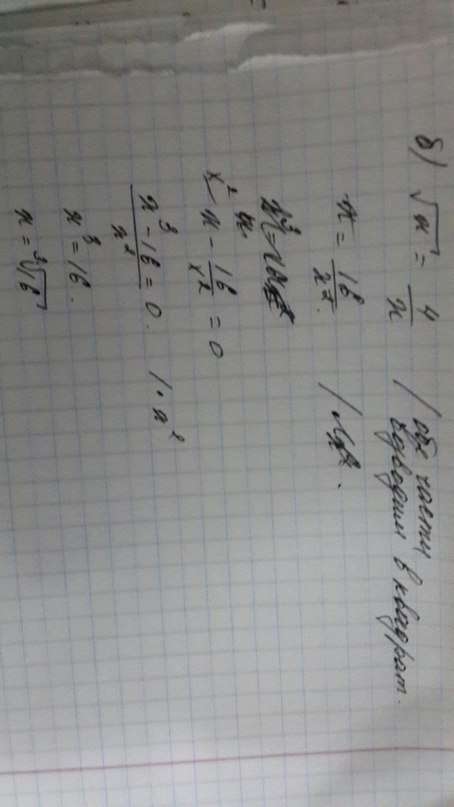 б) √x = 4/x / обе части
возводим в квадрат.
x = 16/x². /
x² x - 16/x² = 0
(x³ - 16)/x² = 0. / · x²
x³ = 16.
x = ³√16